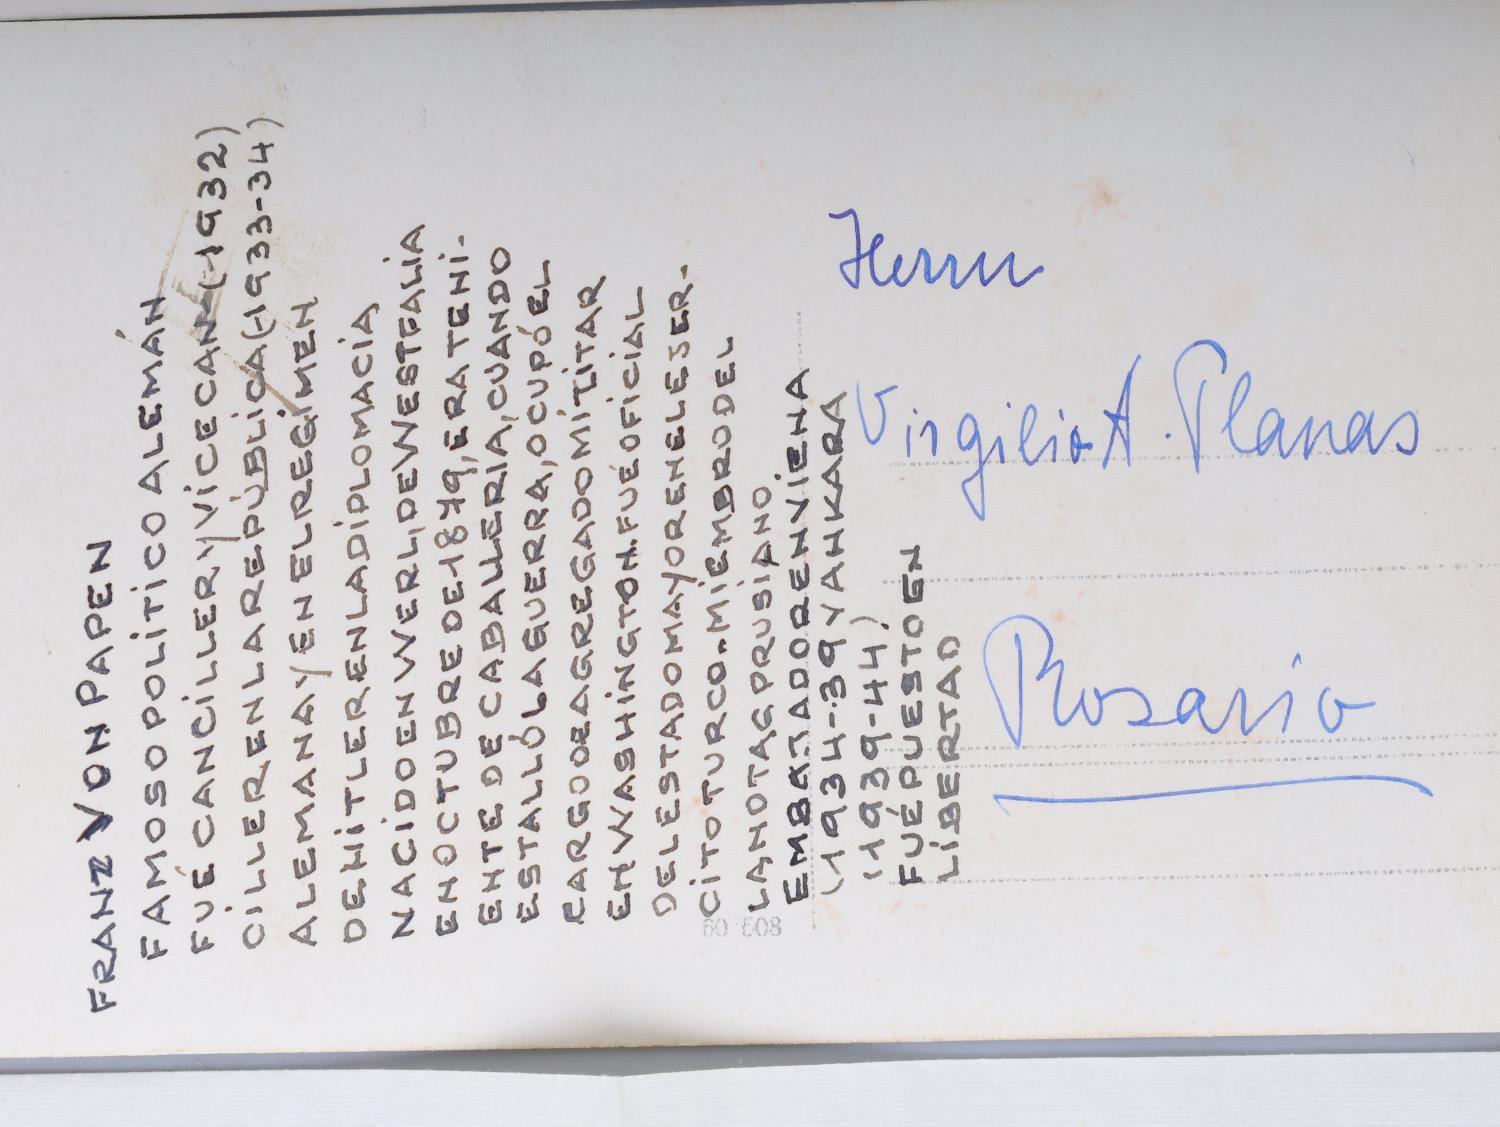 FRANZ VON PAPEN
FAMOSO POLITICO ALEMÁN
FUÉ CANCILLER Y VICE CAN-(1932)
CILLER EN LA REPÚBLICA (1933-34)
ALEMANA Y EN EL REGÍMEN
DE HITLER EN LA DIPLOMACIA
NACIDO EN WERL, DE WESTFALIA
EN OCTUBRE DE 1879, ERA TENI-
ENTE DE CABALLERIA, CUANDO
ESTALLÓ LA GUERRA, OCUPÓ EL
CARGO DE AGREGADO MILITAR
EN WASHINGTON. FUÉ OFICIAL
DEL ESTADO MAYOR EN EL EJER-
CITO TURCO. MIEMBRO DEL
LANDTAG PRUSIANO
EMBAJADOR EN VIENA
(1934-39 Y ANKARA
(1939-44)
FUÉ PUESTO EN
LIBERTAD
Herrn
Virgilio A. Planas
Rosario
803 09